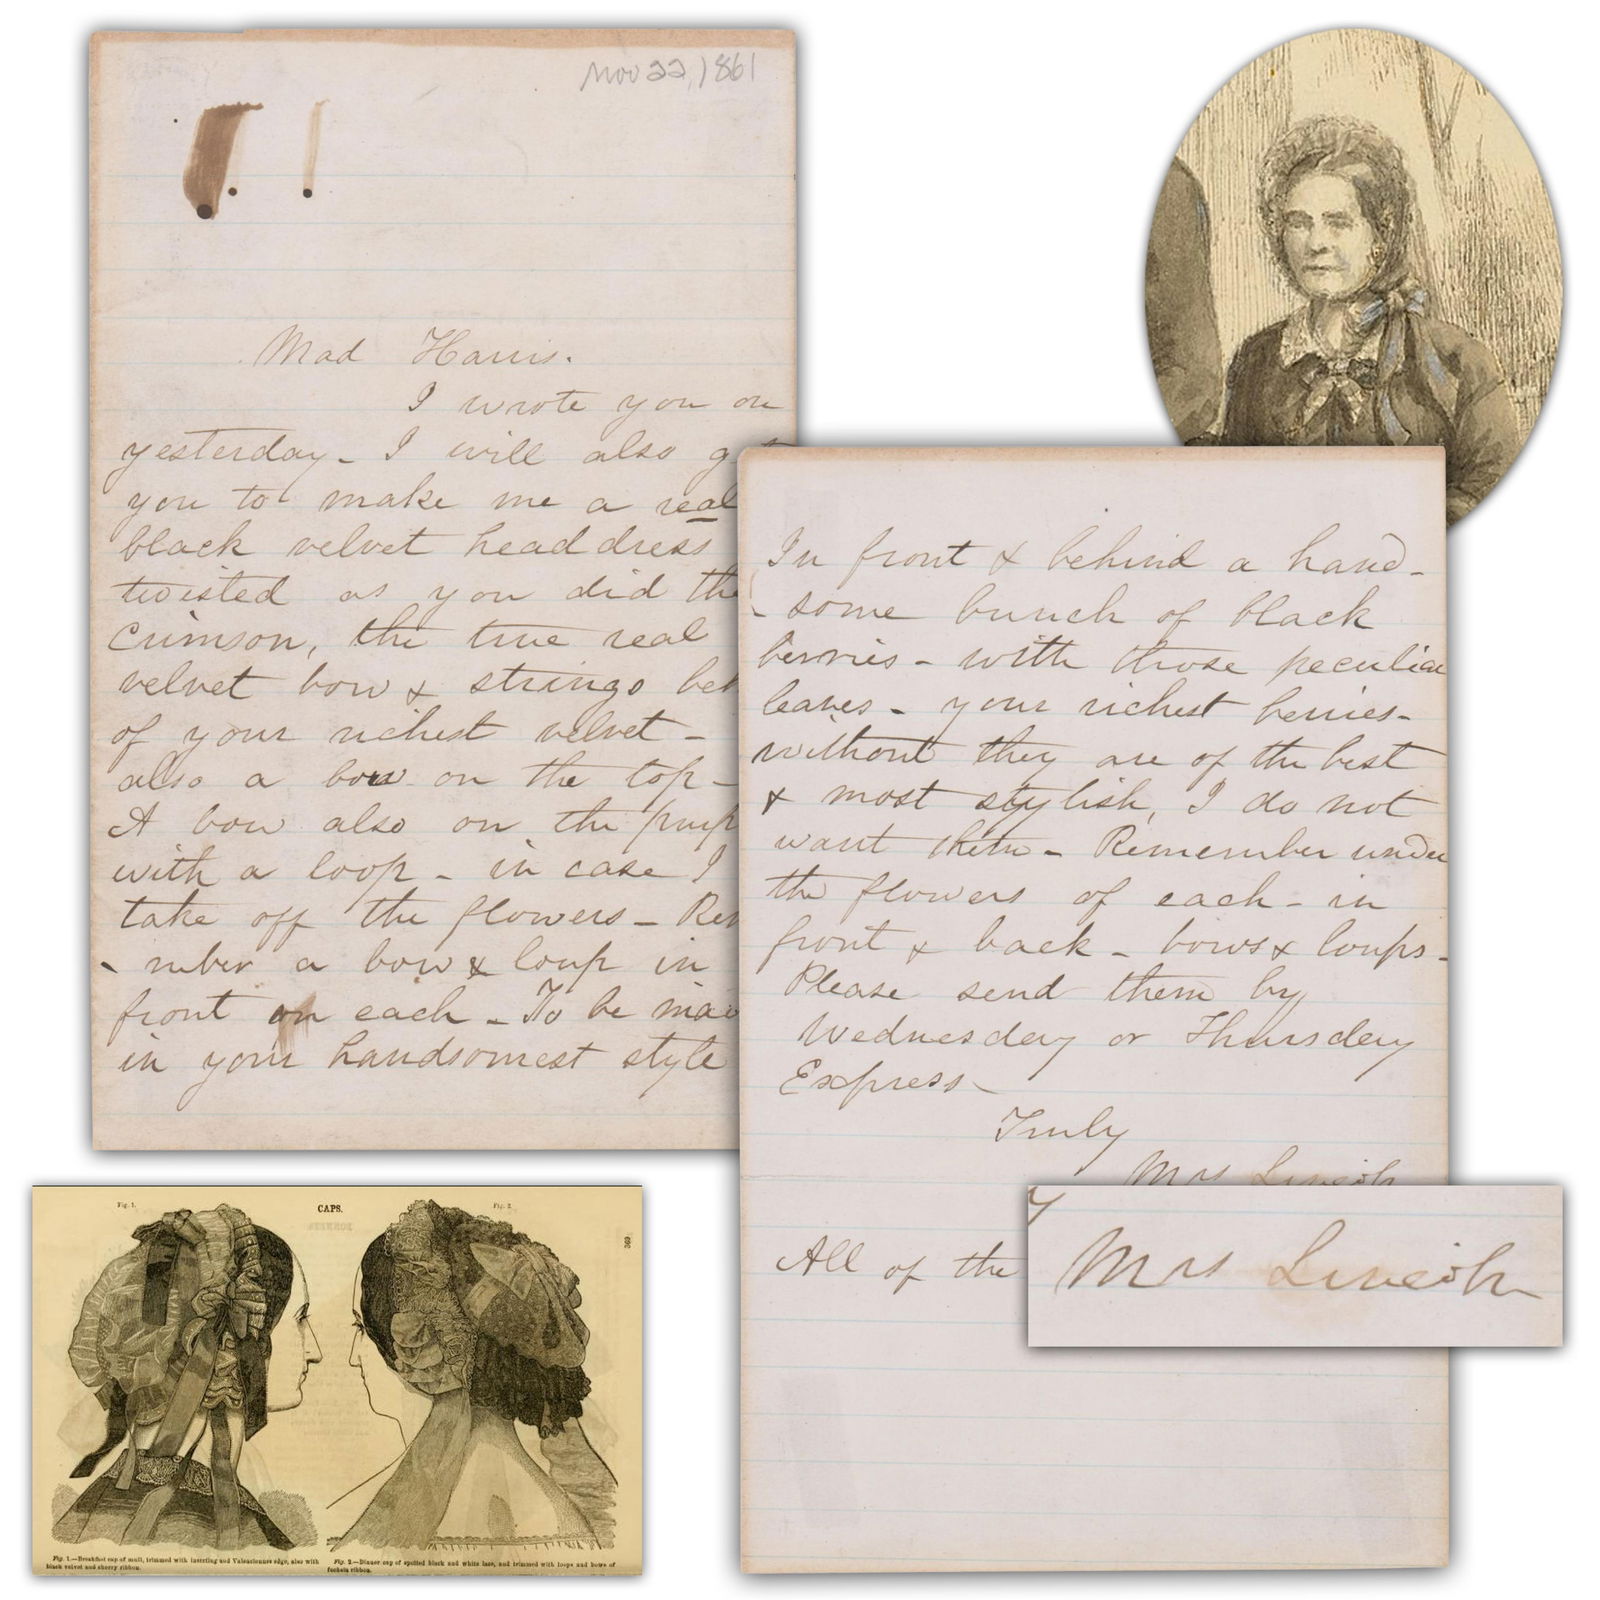 Nov 22, 1861
Mad Harris.
I wrote you on
yesterday - I will also g
you to make me a real
black velvet headdress
twisted as you did the
crimson, the true real
velvet bow & strings beh
of your richest velvet -
also a bow on the top -
A bow also on the purp
with a loop - in case I
take off the flowers - Rem
- mber a bow & loup in
front on each - To be mad
in your handsomest style
In front & behind a hand -
- some bunch of black
berries - with those peculiar
leaves - your richest berries -
without they are of the best
& most stylish, I do not
want them - Remember under
the flowers of each - in
front & back - bows & loups -
Please send them by
Wednesday or Thursday
Express -
Truly
Mrs Lincoln
All of the
y
Mrs Lincoln
Fig. 1.
CAPS.
Fig. 2.
369
Fig. 1.—Breakfast cap of mull, trimmed with inserting and Valenciennes edge, also with
black velvet and cherry ribbon.
Fig. 2.—Dinner cap of spotted black and white lace, and trimmed with loops and bows of
fuchsia ribbon.